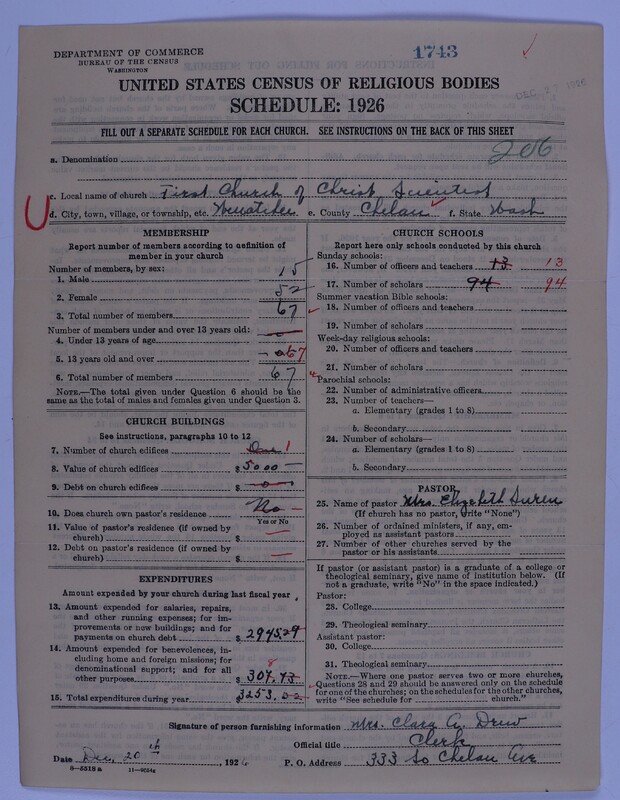 DEPARTMENT OF COMMERCE
BUREAU OF THE CENSUS
WASHINGTON
1743
UNITED STATES CENSUS OF RELIGIOUS BODIES
SCHEDULE: 1926
FILL OUT A SEPARATE SCHEDULE FOR EACH CHURCH. SEE INSTRUCTIONS ON THE BACK OF THIS SHEET
206
a. Denomination
c. Local name of church First Church of Christ, Scientist
d. City, town, village, or township, etc. Wenatchee e. County Chelan f. State Wash
MEMBERSHIP
Report number of members according to definition of
member in your church
Number of members, by sex:
1. Male 15
2. Female 52
3. Total number of members 67
Number of members under and over 13 years old:
4. Under 13 years of age
5. 13 years old and over 67
6. Total number of members 67
NOTE.—The total given under Question 6 should be the
same as the total of males and females given under Question 3.
CHURCH BUILDINGS
See instructions, paragraphs 10 to 12
7. Number of church edifices One 1
8. Value of church edifices $ 5000
9. Debt on church edifices $ 0
10. Does church own pastor's residence? No
Yes or No
11. Value of pastor's residence (if owned by
church) $
12. Debt on pastor's residence (if owned by
church) $
EXPENDITURES
Amount expended by your church during last fiscal year
13. Amount expended for salaries, repairs,
and other running expenses; for im-
provements or new buildings; and for
payments on church debt $ 2945.29
14. Amount expended for benevolences, in-
cluding home and foreign missions; for
denominational support; and for all
other purposes 8 $ 307.73
15. Total expenditures during year $ 3253.02
CHURCH SCHOOLS
Report here only schools conducted by this church
Sunday schools:
16. Number of officers and teachers 13 13
17. Number of scholars 94 94
Summer vacation Bible schools:
18. Number of officers and teachers
19. Number of scholars
Week-day religious schools:
20. Number of officers and teachers
21. Number of scholars
Parochial schools:
22. Number of administrative officers
23. Number of teachers—
a. Elementary (grades 1 to 8)
b. Secondary
24. Number of scholars—
a. Elementary (grades 1 to 8)
b. Secondary
PASTOR
25. Name of pastor Mrs. Elizabeth
(If church has no pastor, write "None")
26. Number of ordained ministers, if any, em-
ployed as assistant pastors
27. Number of other churches served by the
pastor or his assistants
If pastor (or assistant pastor) is a graduate of a college or
theological seminary, give name of institution below. (If
not a graduate, write "No" in the space indicated.)
Pastor:
28. College
29. Theological seminary
Assistant pastor:
30. College
31. Theological seminary
NOTE.—Where one pastor serves two or more churches,
Questions 28 and 29 should be answered only on the schedule
for one of the churches; on the schedules for the other churches,
write "See schedule for church."
Signature of person furnishing information Mrs. Clara A. Drew
Official title Clerk
Date Dec. 20th, 1926 P. O. Address 333 So Chelan Ave
8—5518 a 11—9024